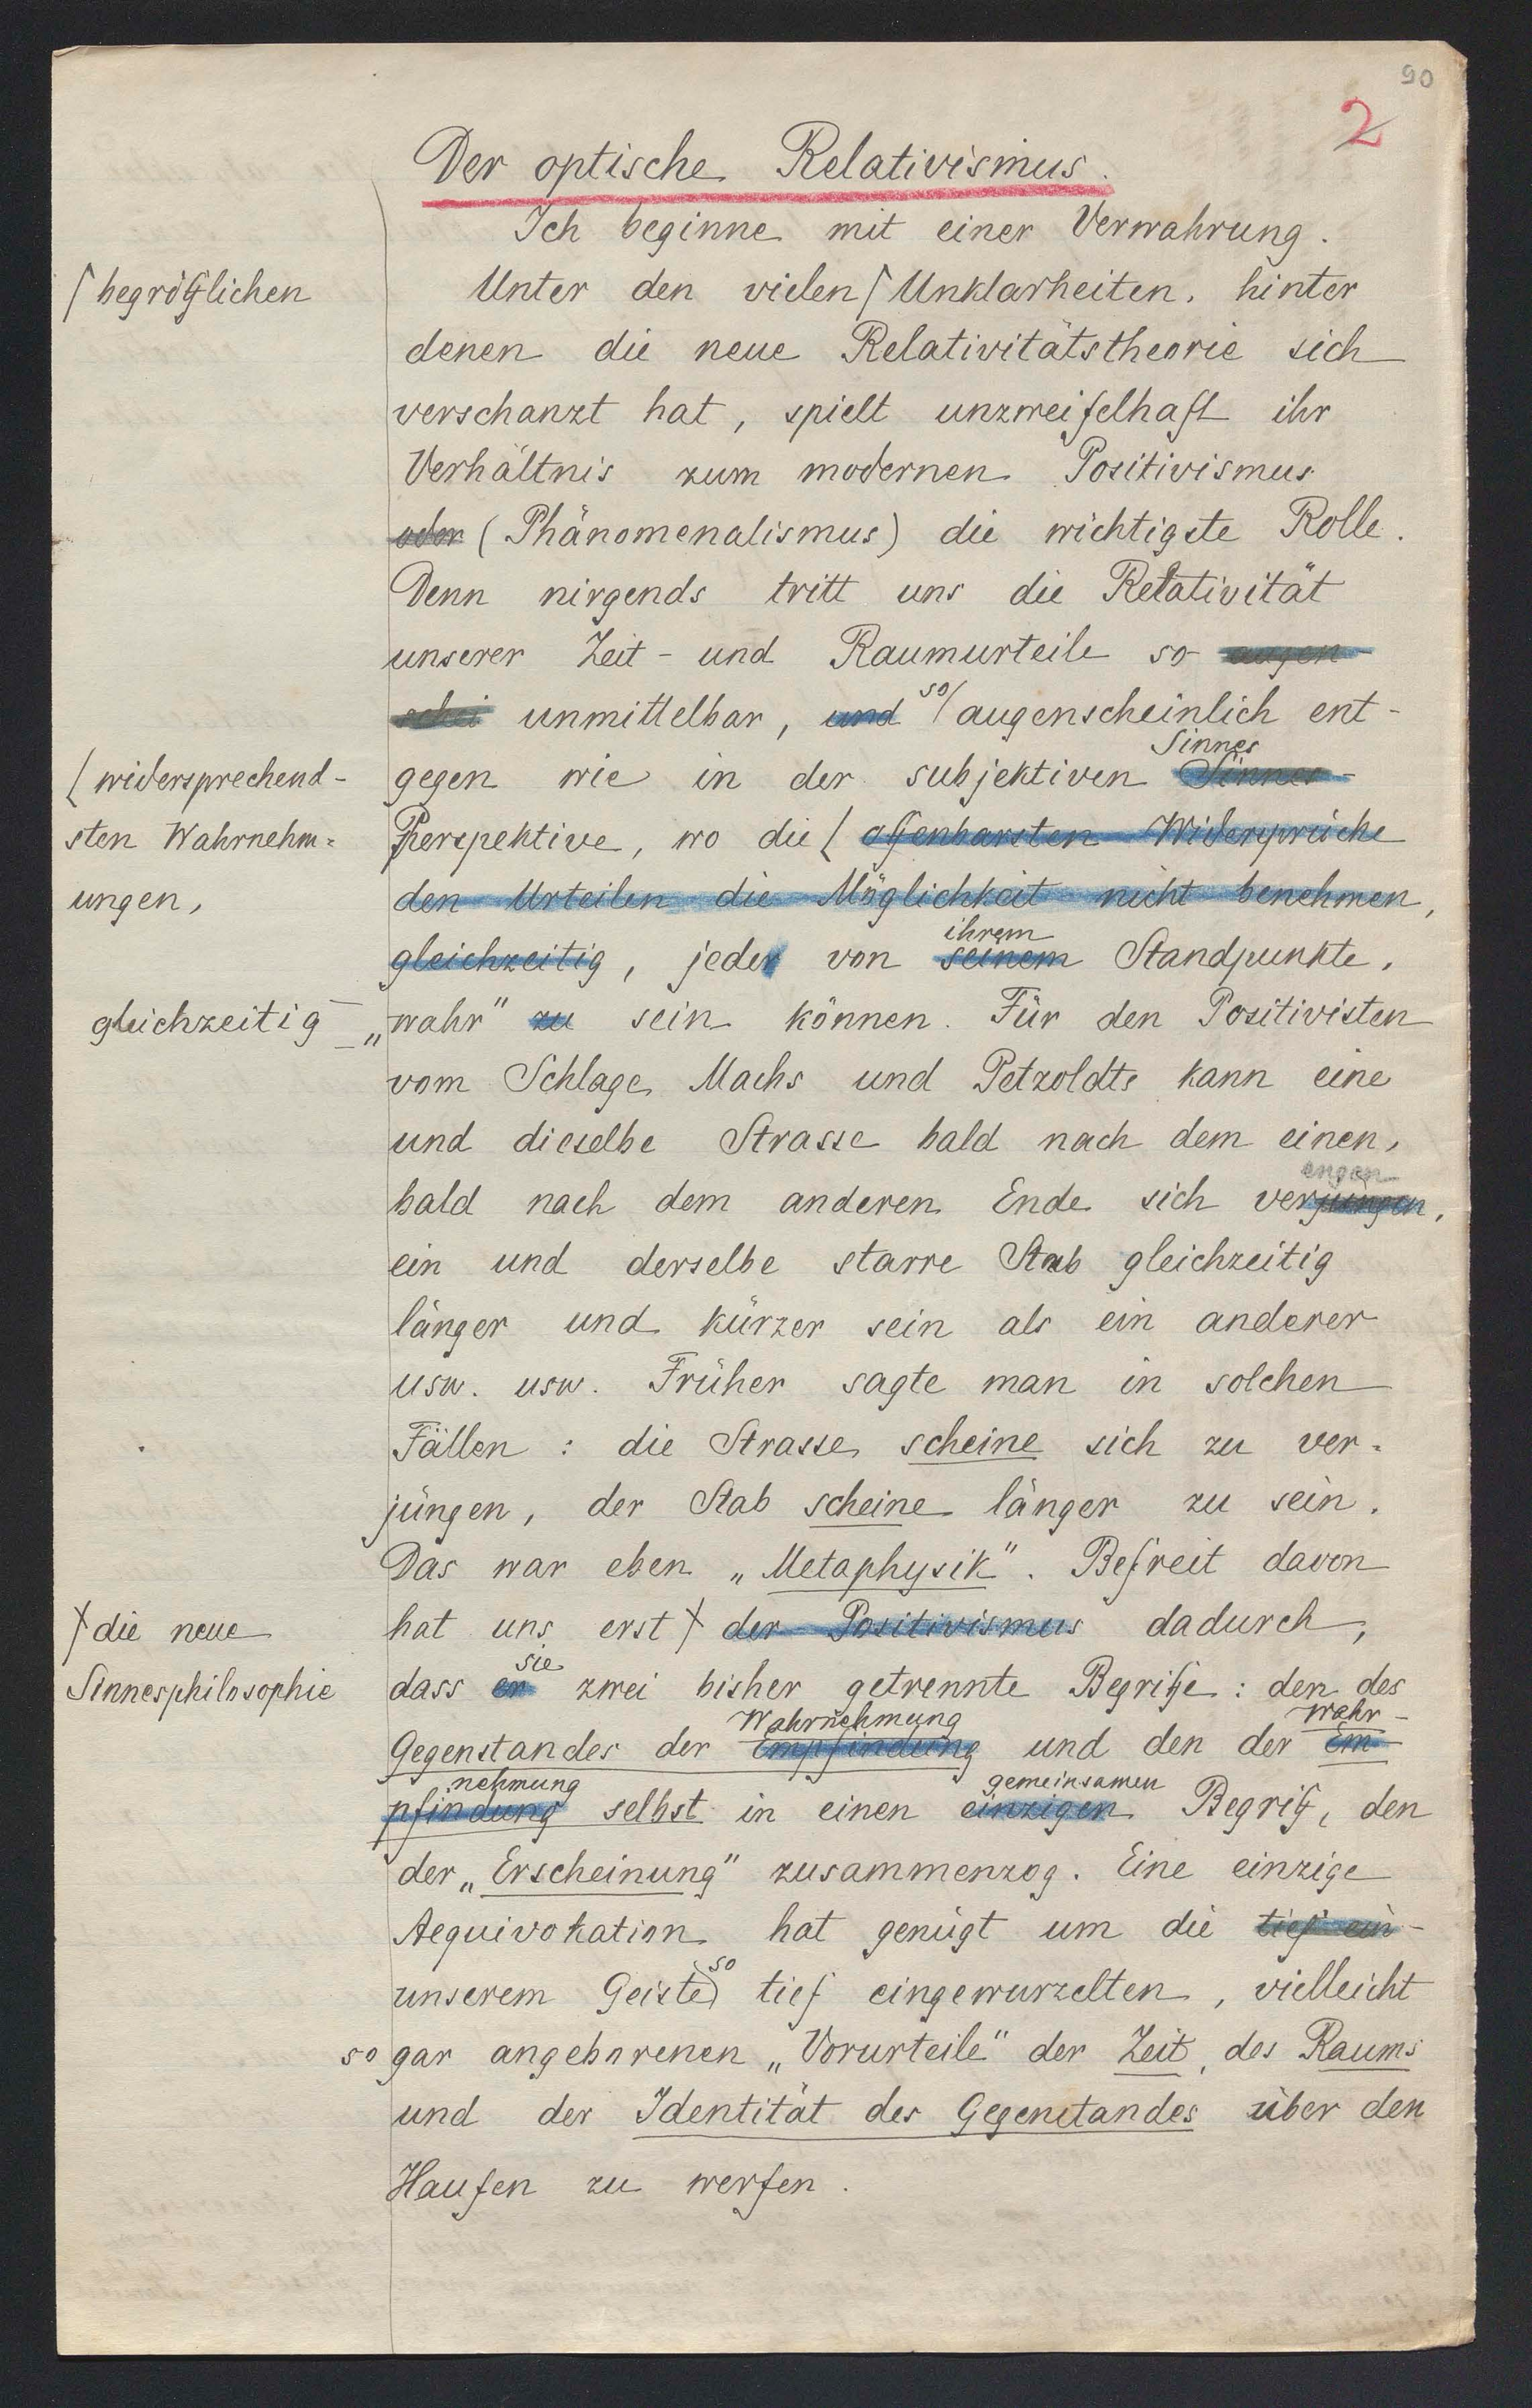 90
2
Der optische Relativismus.
Ich beginne mit einer Verwahrung.
⌈begrifflichen
Unter den vielen ⌈Unklarheiten, hinter
denen die neue Relativitätstheorie sich
verschanzt hat, spielt unzweifelhaft ihr
Verhältnis zum modernen Positivismus
oder (Phänomenalismus) die wichtigste Rolle.
Denn nirgends tritt uns die Relativität
unserer Zeit- und Raumurteile so augen-
schei unmittelbar, und so/ augenscheinlich ent-
Sinnes
gegen wie in der subjektiven Sinnes-
{widersprechend-
sten Wahrnehm=
ungen,
Perspektive, wo die { offenbarsten Widersprüche
den Urteilen die Möglichkeit nicht benehmen,
ihrem
gleichzeitig, jeder von seinem Standpunkte,
gleichzeitig
„wahr" zu sein können. Für den Positivisten
vom Schlage Machs und Petzoldts kann eine
und dieselbe Strasse bald nach dem einen,
engen
bald nach dem anderen Ende sich verjüngen,
ein und derselbe starre Stab gleichzeitig
länger und kürzer sein als ein anderer
usw. usw. Früher sagte man in solchen
Fällen: die Strasse scheine sich zu ver=
jüngen, der Stab scheine länger zu sein.
Das war eben „Metaphysik". Befreit davon
ꞩdie neue
Sinnesphilosophie
hat uns erst ꞩ der Positivismus dadurch,
sie
dass er zwei bisher getrennte Begriffe: den des
Wahrnehmung Wahr-
Gegenstandes der Empfindung und den der Em-
nehmung gemeinsamen
pfindung selbst in einen einzigen Begriff, den
der „Erscheinung" zusammenzog. Eine einzige
Aequivokation hat genügt um die tief ein-
so
unserem Geiste tief eingewurzelten, vielleicht
sogar angeborenen „Vorurteile" der Zeit, des Raums
und der Identität des Gegenstandes über den
Haufen zu werfen.